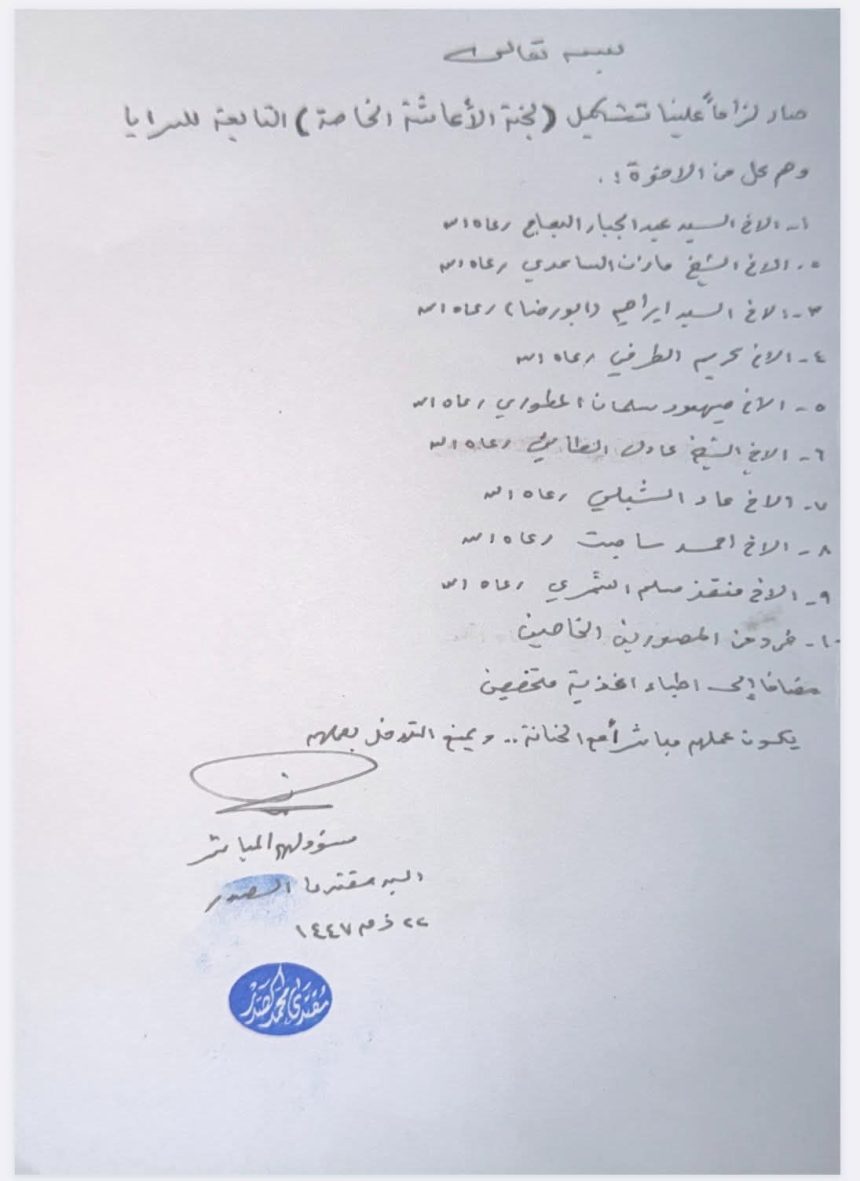 بسمه تعالى
صار لزاماً علينا تشكيل (لجنة الأعاشة الخاصة) التابعة للسرايا
وهم كل من الاخوة :.
١- الاخ السيد عبد الجبار رعاه الله
٢- الاخ الشيخ مازن الساعدي رعاه الله
٣- الاخ السيد ابراهيم (ابو رضا) رعاه الله
٤- الاخ كريم الطرفي رعاه الله
٥- الاخ سلمان رعاه الله
٦- الاخ الشيخ عادل رعاه الله
٧- الاخ الشبلي رعاه الله
٨- الاخ احمد رعاه الله
٩- الاخ منقذ مسلم الشمري رعاه الله
١٠- فرد من المصورين الخاصين
مضافا إلى اطباء اغذية
يكون عملهم مباشر أمع الحنانة.. ويمنع التدخل بعملهم
مسؤولهم المباشر
السيد مقتدى الصدر
٢٢ ١٤٤٧
مقتدى محمد الصدر